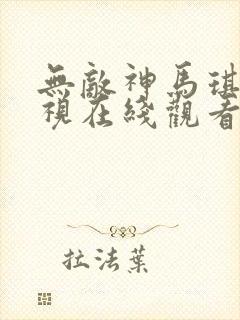 無敵神馬琪
視在綫觀看
拉法葉